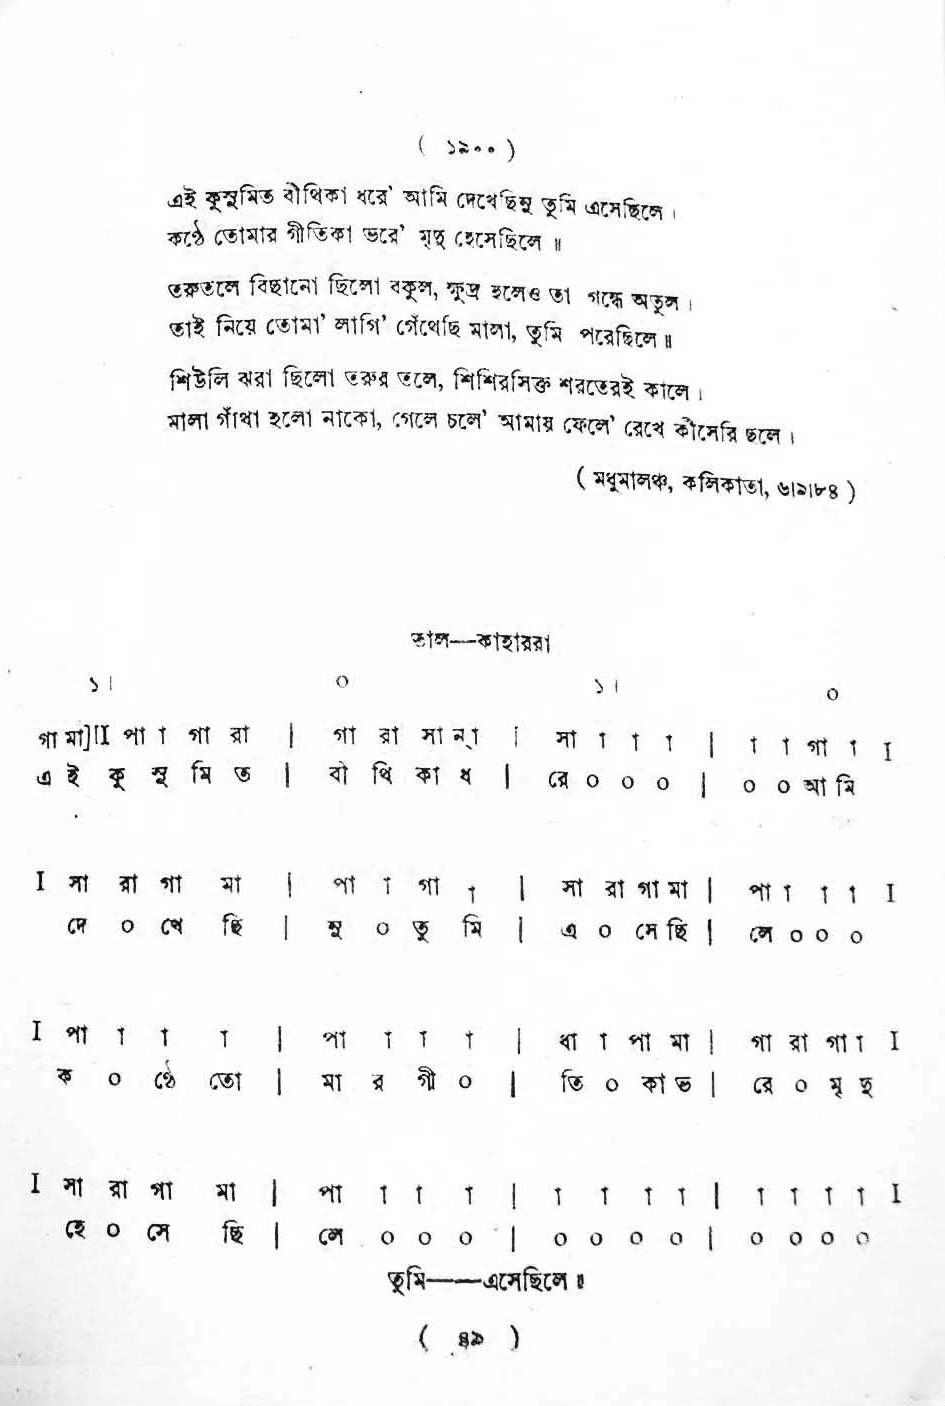 ( ১৯০০ )
এই কুসুমিত বীথিকা ধরে' আমি দেখেছিনু তুমি এসেছিলে ।
কণ্ঠে তোমার গীতিকা ভরে' মৃদু হেসেছিলে ॥
তরুতলে বিছানো ছিলো বকুল, ক্ষুদ্র হলেও তা গন্ধে অতুল ।
তাই নিয়ে তোমা' লাগি' গেঁথেছি মালা, তুমি পরেছিলে ॥
শিউলি ঝরা ছিলো তরুর তলে, শিশিরসিক্ত শরতেরই কালে ।
মালা গাঁথা হলো নাকো, গেলে চলে' আমায় ফেলে' রেখে কীসেরি ছলে ।
( মধুমালঞ্চ, কলিকাতা, ৬।৯।৮৪ )
তাল—কাহাররা
১। ০ ১। ০
গা মা][I পা া গা রা | গা রা সা ন্ া | সা া া া | া া গা া I
এ ই কু সু মি ত | বী থি কা ধ | রে ০ ০ ০ | ০ ০ আ মি
I সা রা গা মা | পা া গা া | সা রা গা মা | পা া া া I
দে ০ খে ছি | নু ০ তু মি | এ ০ সে ছি | লে ০ ০ ০
I পা া া া | পা া া া | ধা া পা মা | গা রা গা া I
ক ০ ণ্ঠে তো | মা র গী ০ | তি ০ কা ভ | রে ০ মৃ দু
I সা রা গা মা | পা া া া | া া া া | া া া া I
হে ০ সে ছি | লে ০ ০ ০ | ০ ০ ০ ০ | ০ ০ ০ ০
তুমি——এসেছিলে ॥
( ৪৯ )